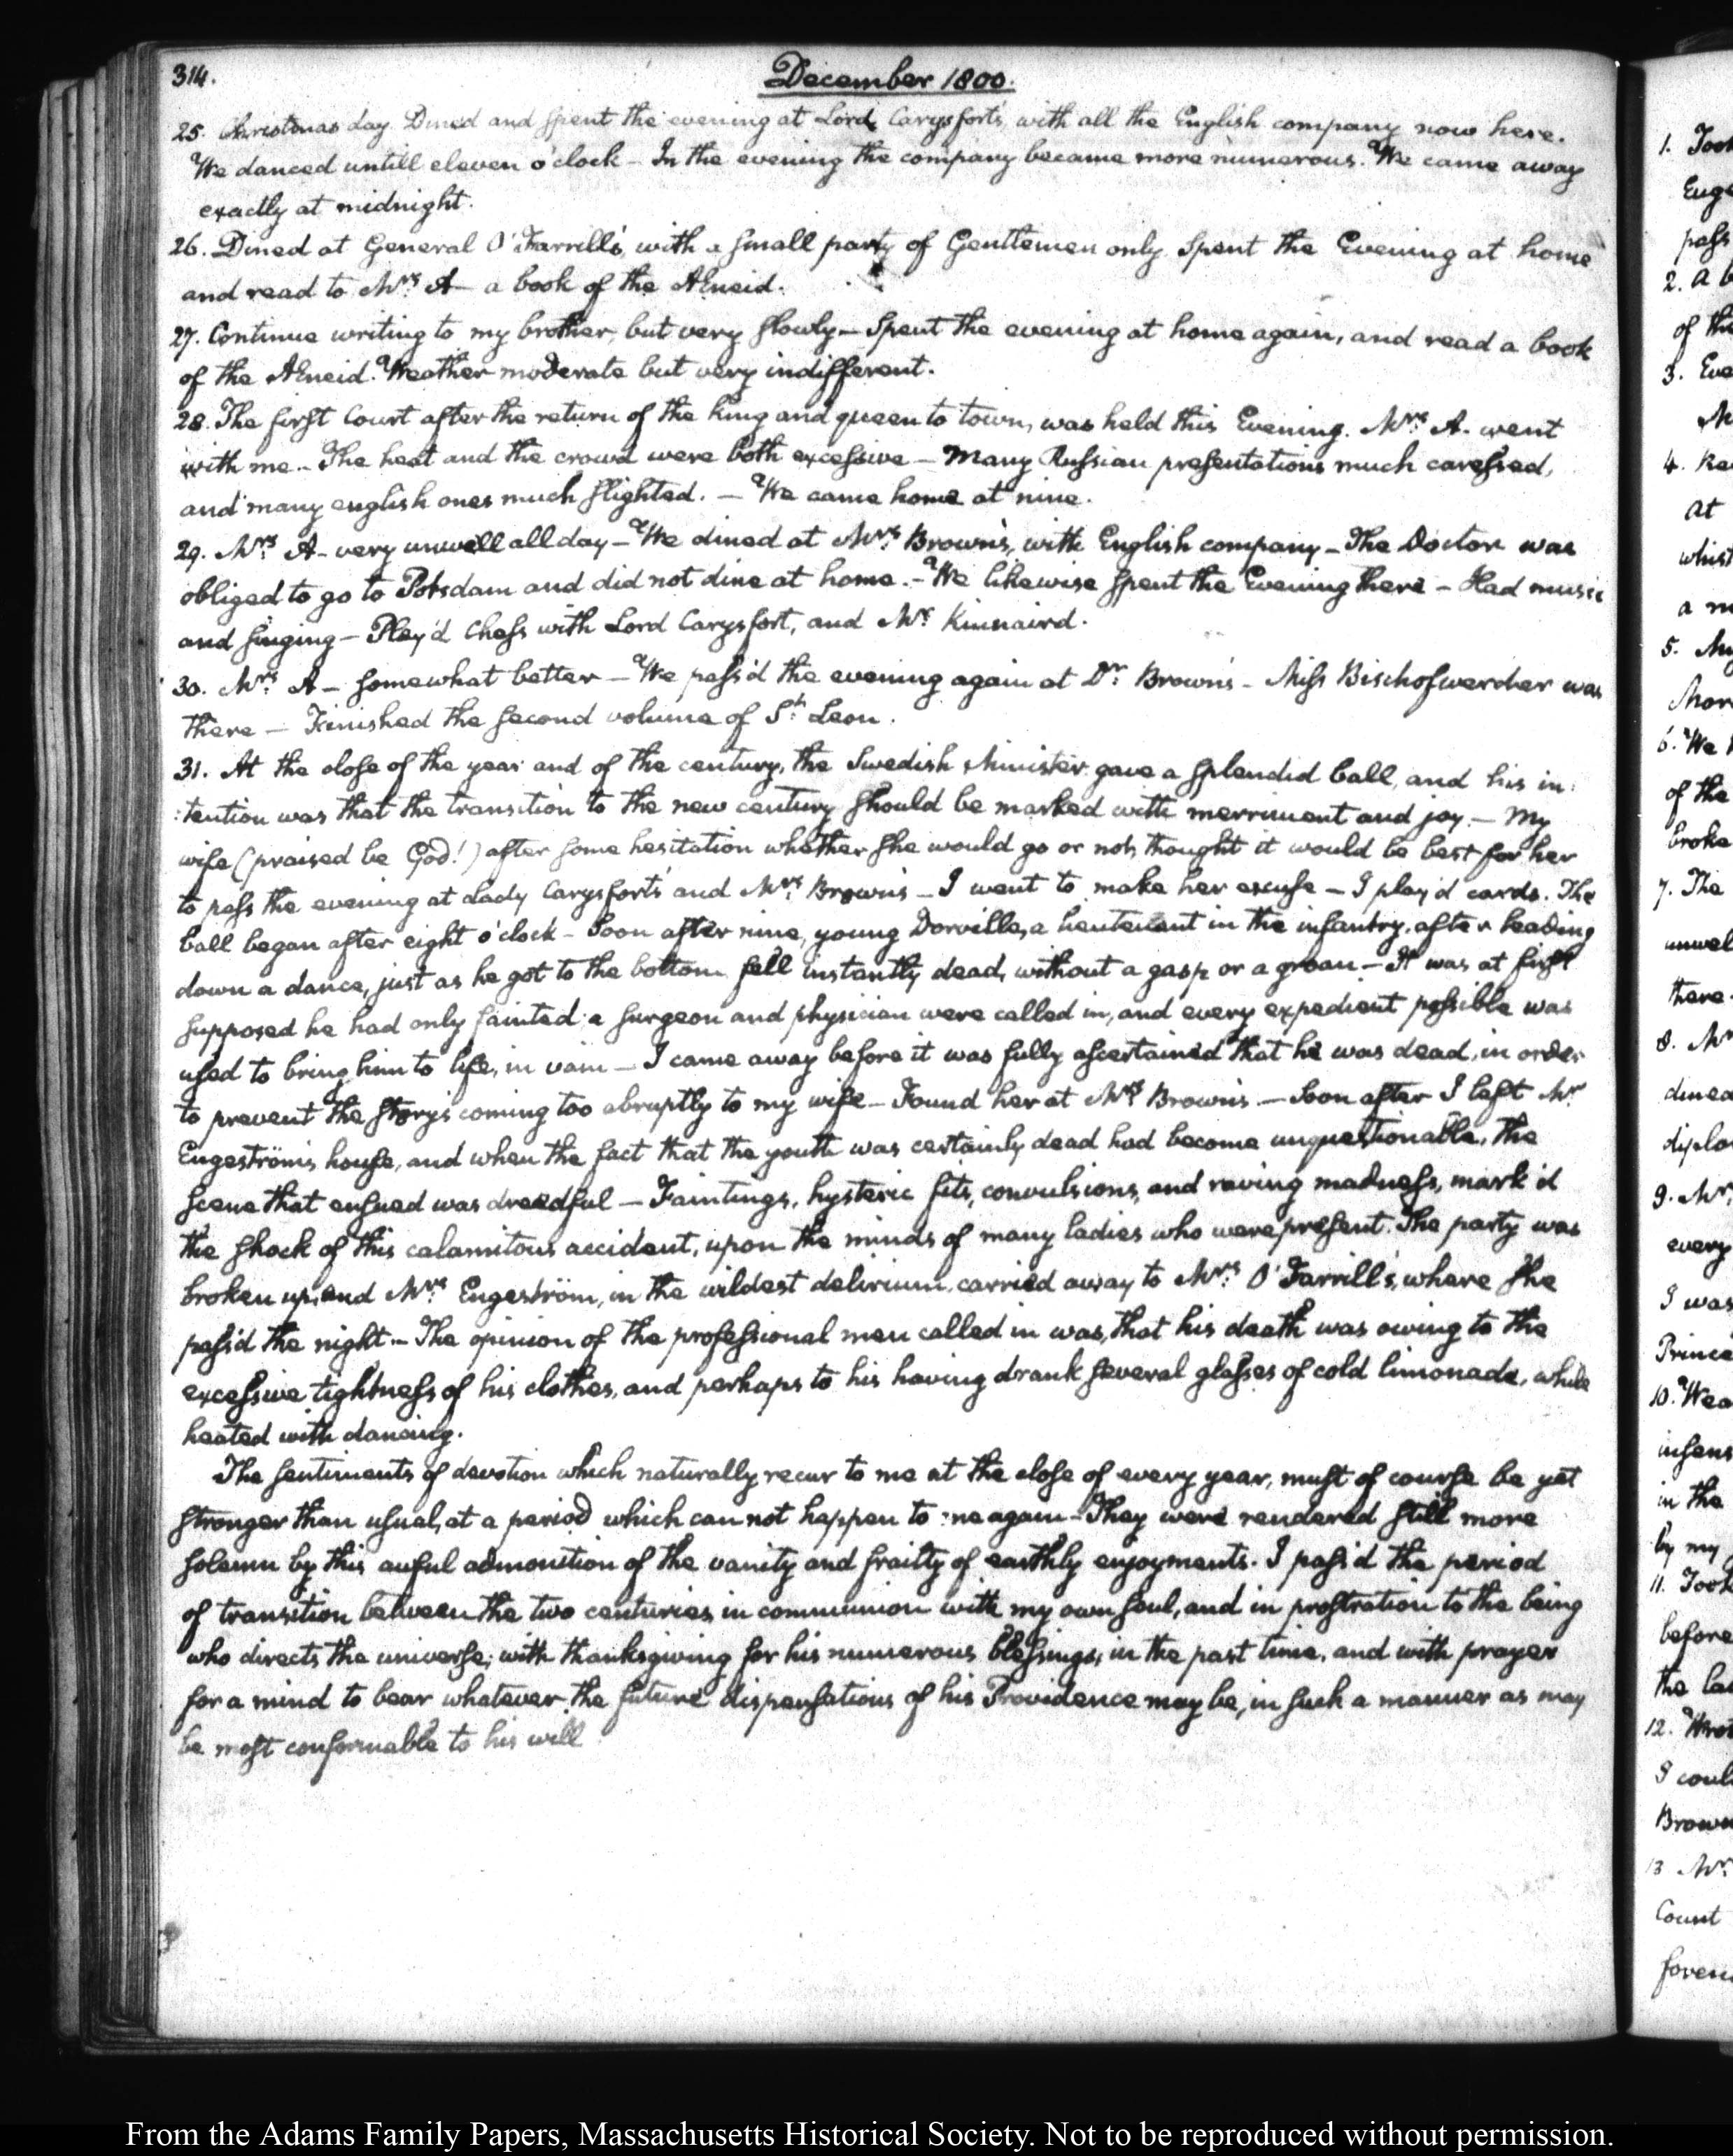 314.
December 1800.
25. Christmas day. Dined and spent the evening at Lord Carysfort's, with all the English company now here.
We danced untill eleven o'clock — In the evening the company became more numerous. We came away
exactly at midnight.
26. Dined at General O'Farrill's, with a small party of Gentlemen only. Spent the Evening at home
and read to Mrs. A— a book of the Æneid.
27. Continue writing to my brother, but very slowly — Spent the evening at home again, and read a book
of the Æneid. Weather moderate but very indifferent.
28. The first Court after the return of the king and queen to town, was held this Evening. Mrs. A. went
with me. — The heat and the crowd were both excessive — Many Russian presentations much caressed,
and many english ones much slighted. — We came home at nine.
29. Mrs. A— very unwell all day — We dined at Mrs. Brown's, with English company — The Doctor was
obliged to go to Potsdam and did not dine at home. — We likewise spent the Evening there — Had music
and singing — Play'd Chess with Lord Carysfort, and Mr. Kinnaird.
30. Mrs. A— somewhat better — We pass'd the evening again at Dr. Brown's — Miss Bischofwerder was
there — Finished the second volume of St. Leon.
31. At the close of the year and of the century, the Swedish Minister gave a splendid ball, and his in:
:tention was that the transition to the new century should be marked with merriment and joy. — My
wife (praised be God!) after some hesitation whether she would go or not, thought it would be best for her
to pass the evening at Lady Carysfort's and Mrs. Brown's — I went to make her excuse — I play'd cards. The
ball began after eight o'clock — Soon after nine, young Dorville, a lieutenant in the infantry, after leading
down a dance, just as he got to the bottom fell instantly dead, without a gasp or a groan — It was at first
supposed he had only fainted; a surgeon and physician were called in, and every expedient possible was
used to bring him to life, in vain — I came away before it was fully ascertained that he was dead, in order
to prevent the story's coming too abruptly to my wife — Found her at Mrs. Brown's — Soon after I left Mr.
Engeström's house, and when the fact that the youth was certainly dead had become unquestionable, the
scene that ensued was dreadful — Faintings, hysteric fits, convulsions, and raving madness, mark'd
the shock of this calamitous accident, upon the minds of many ladies who were present. The party was
broken up, and Mrs. Engeström, in the wildest delirium, carried away to Mrs. O'Farrill's, where she
pass'd the night — The opinion of the professional men called in was, that his death was owing to the
excessive tightness of his clothes, and perhaps to his having drank several glasses of cold limonade, while
heated with dancing.
The sentiments of devotion which naturally recur to me at the close of every year, must of course be yet
stronger than usual, at a period which can not happen to me again — They were rendered still more
solemn by this awful admonition of the vanity and frailty of earthly enjoyments. I pass'd the period
of transition between the two centuries, in communion with my own soul, and in prostration to the being
who directs the universe; with thanksgiving for his numerous blessings, in the past time, and with prayer
for a mind to bear whatever the future dispensations of his Providence may be, in such a manner as may
be most conformable to his will
From the Adams Family Papers, Massachusetts Historical Society. Not to be reproduced without permission.